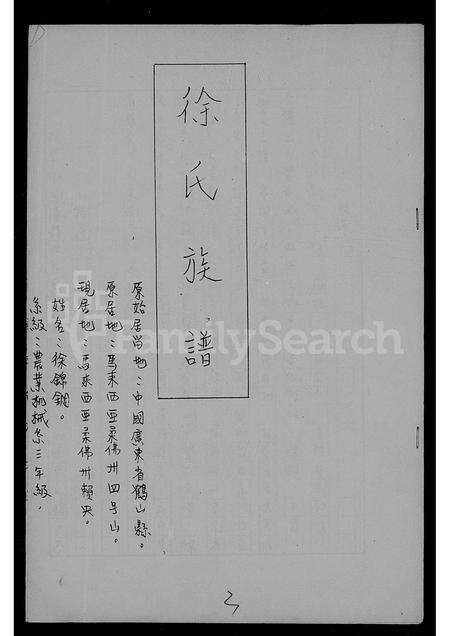 徐氏族譜
原始居尚地：中國廣東省鶴山縣。
原居地：馬來西亞柔佛州四号山。
現居地：馬來西亞柔佛州賴央。
姓名：徐錦鋼。
系級：農業机械系三年級．
FamilySearch